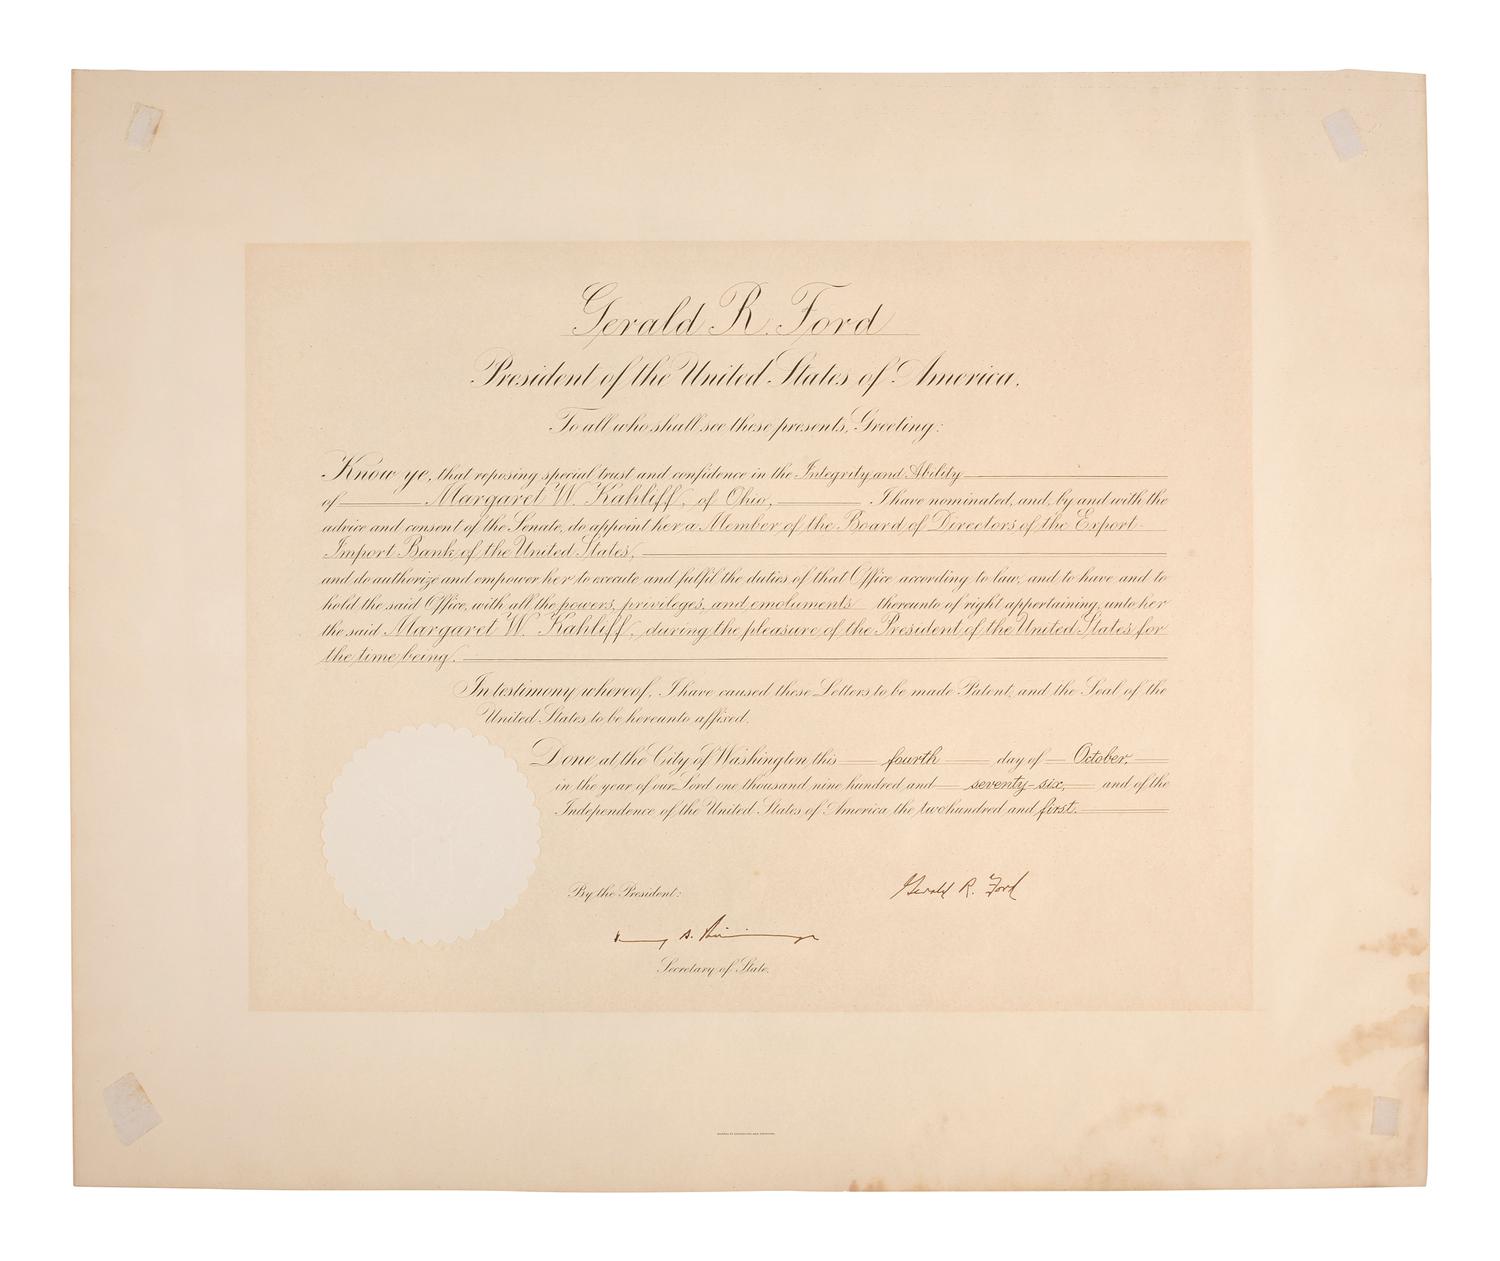 Gerald R. Ford
President of the United States of America.
To all who shall see these presents, Greeting:
Know ye, that reposing special trust and confidence in the Integrity and Ability
of Margaret W. Kahliff, of Ohio, I have nominated, and, by and with the
advice and consent of the Senate, do appoint her a Member of the Board of Directors of the Export-
Import Bank of the United States,
and do authorize and empower her to execute and fulfil the duties of that Office according to law, and to have and to
hold the said Office, with all the powers, privileges, and emoluments thereunto of right appertaining, unto her
the said Margaret W. Kahliff, during the pleasure of the President of the United States for
the time being.
In testimony whereof, I have caused these Letters to be made Patent, and the Seal of the
United States to be hereunto affixed.
Done at the City of Washington this fourth day of October,
in the year of our Lord one thousand nine hundred and seventy-six, and of the
Independence of the United States of America the two hundred and first.
By the President:
Gerald R. Ford
Secretary of State.